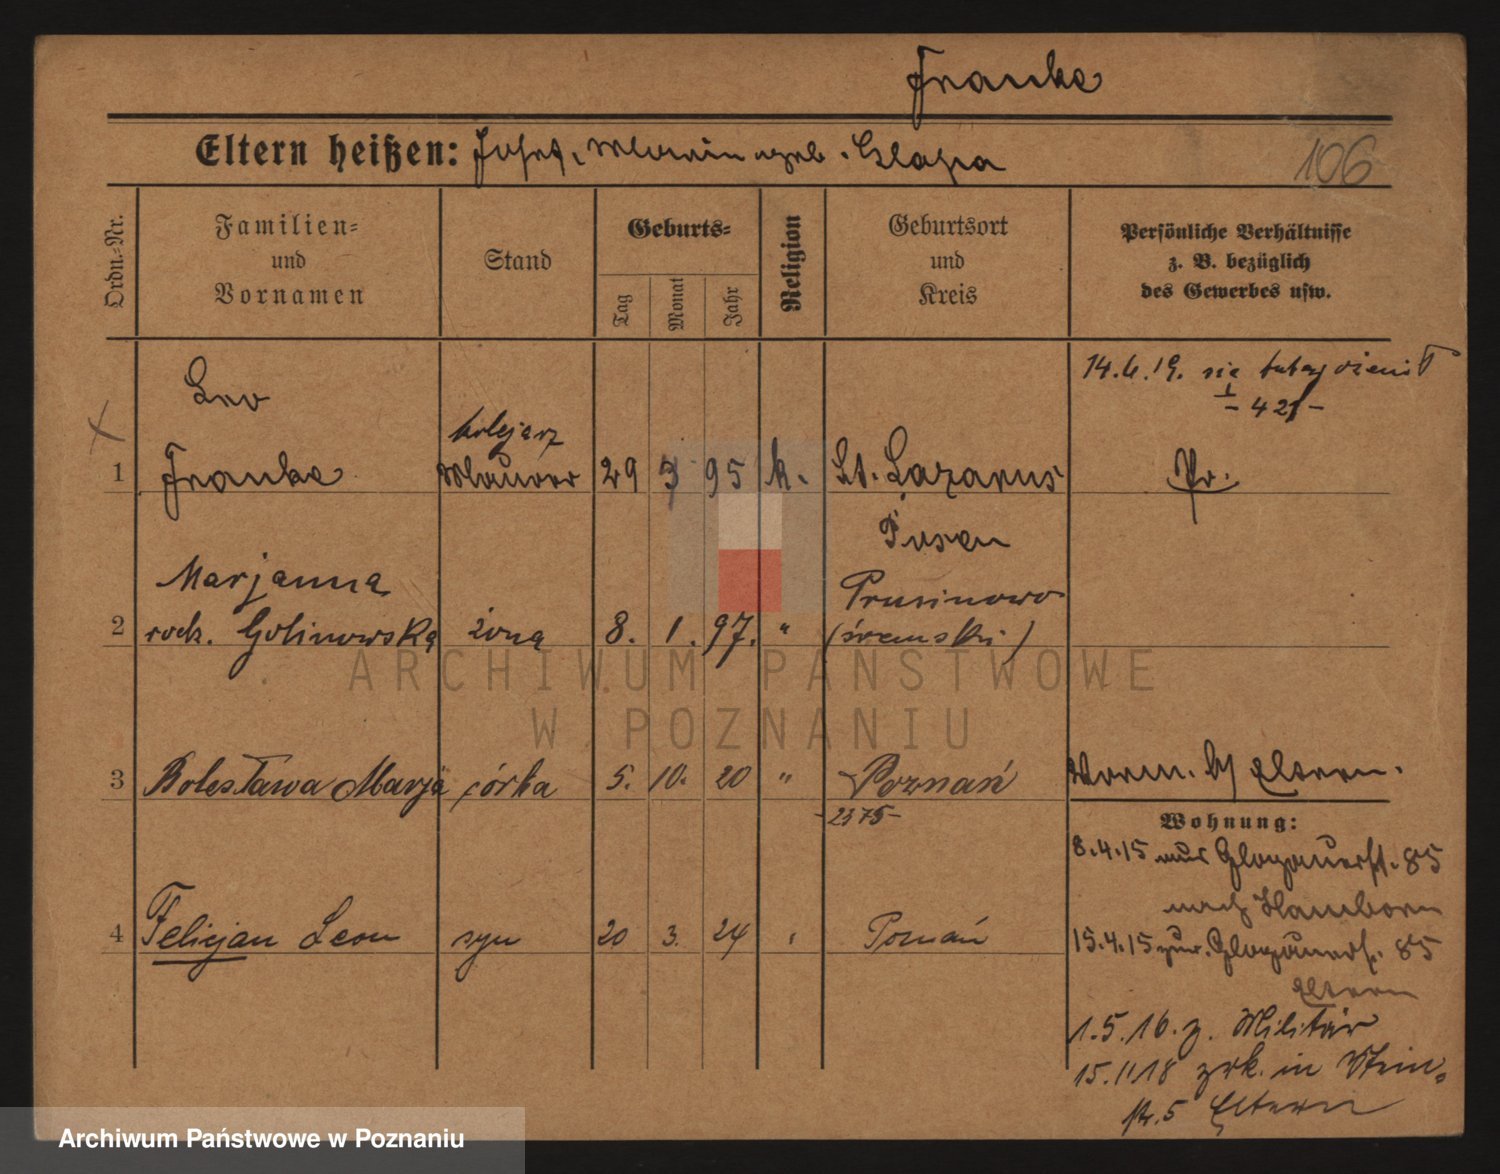 Franke
Eltern heißen: Josef, Maria geb. Glapa
106
Ordn.-Nr.
Familien-
und
Vornamen
Stand
Geburts-
Tag
Monat
Jahr
Religion
Geburtsort
und
Kreis
Persönliche Verhältnisse
z. B. bezüglich
des Gewerbes usw.
14.6.19. się tutaj ożenił
- 421 -
Leo
kolejarz
1 Franke Maurer 29 3 95 k. St. Lazarus
Pr.
Posen
Marjanna
Prusinowo
2 rodz. Golinowska żona 8. 1. 97. " (śremski)
3 Bolesława Marja córka 5. 10. 20 " Poznań
- 2375 -
Vorm. b/ Eltern.
Wohnung:
8.4.15 aus Glogauerst. 85
nach Hamborn
4 Felicjan Leon syn 20 3. 24 " Poznań
15.4.15 zur. Glogauerst. 85
Eltern
1.5.16. z. Militär
15.11 18 zrk. in Stein-
str. 5 Eltern
ARCHIWUM PAŃSTWOWE
W POZNANIU
Archiwum Państwowe w Poznaniu